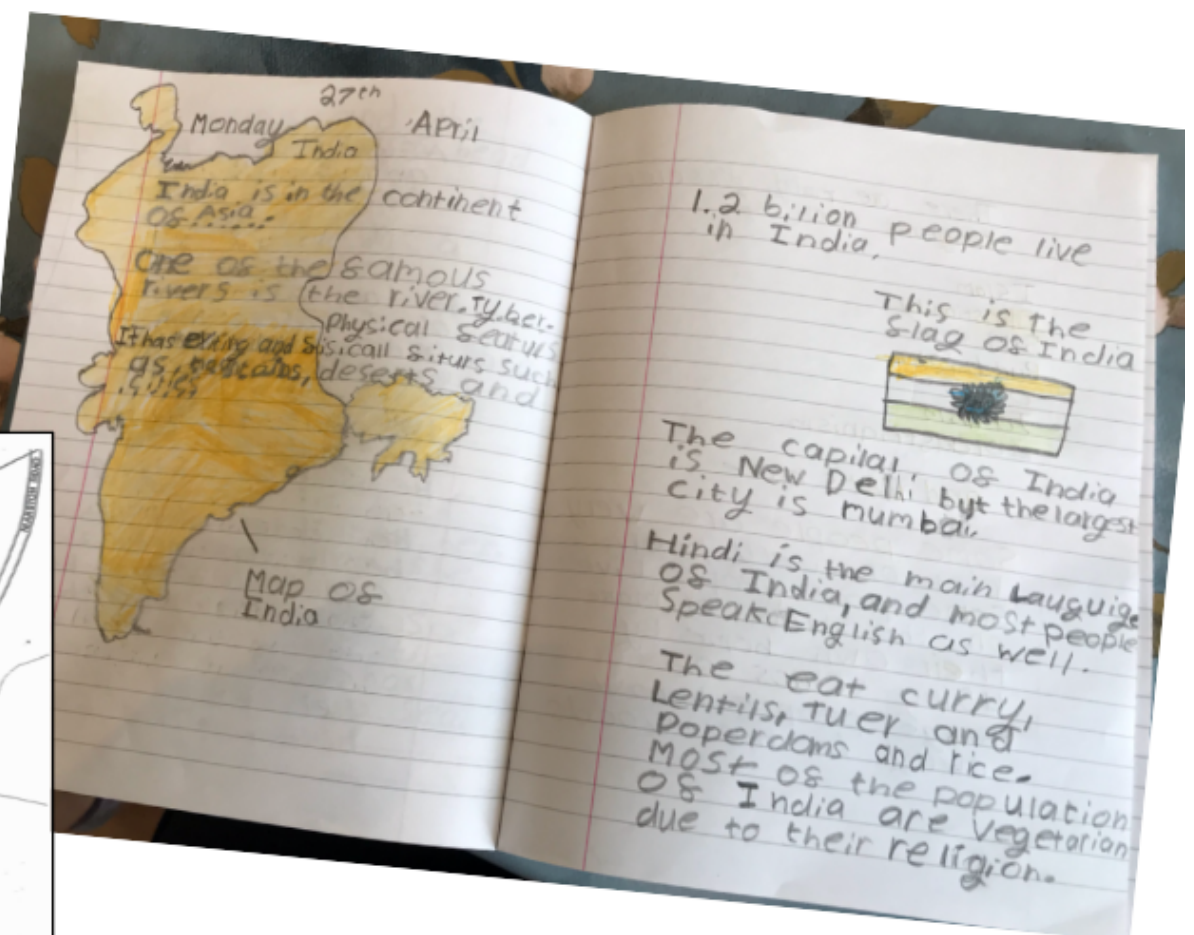 27th
Monday April
India
India is in the continent
of Asia.
One of the famous
rivers is the river. Tyber.
Physical featurs
It has exiting and fisicall fiturs such
as, deserts, and
cities
Map of
India
1.2 bilion people live
in India.
This is the
flag of India
The capital of India
is New Delhi byt the largest
city is mumbai.
Hindi is the main Lauguige
of India, and most people
speak English as well.
The eat curry,
Lentils, Tuer and
Poperdoms and rice.
Most of the population
of India are vegetarian
due to their religion.